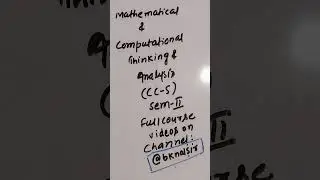 Mathematical
&
Computational
Thinking &
Analysis
(CC-5)
Sem-II
Full course
videos on
Channel:
@bknalsir